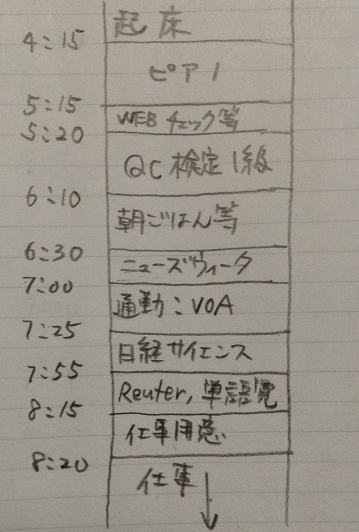 起床
4:15
ピアノ
5:15
WEB チェック等
5:20
QC 検定 1級
6:10
朝ごはん等
6:30
ニューズウィーク
7:00
通勤:VOA
7:25
日経サイエンス
7:55
Reuter, 単語覚
8:15
仕事用意
8:20
仕事